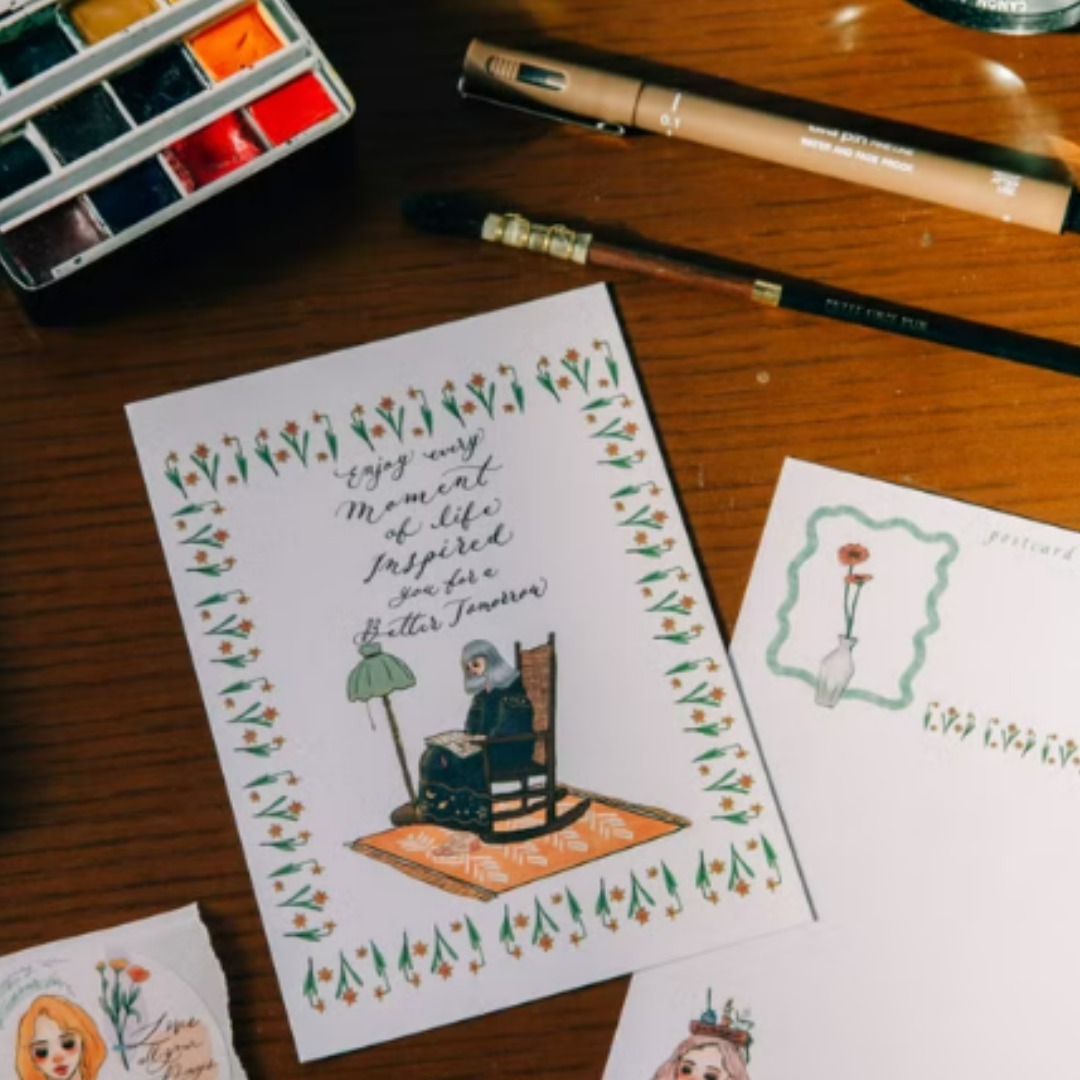 0.1
pin FINE LINE
WATER AND FADE PROOF
Enjoy every
Moment
of life
Inspired
you for a
Better Tomorrow
postcard
Love
all your